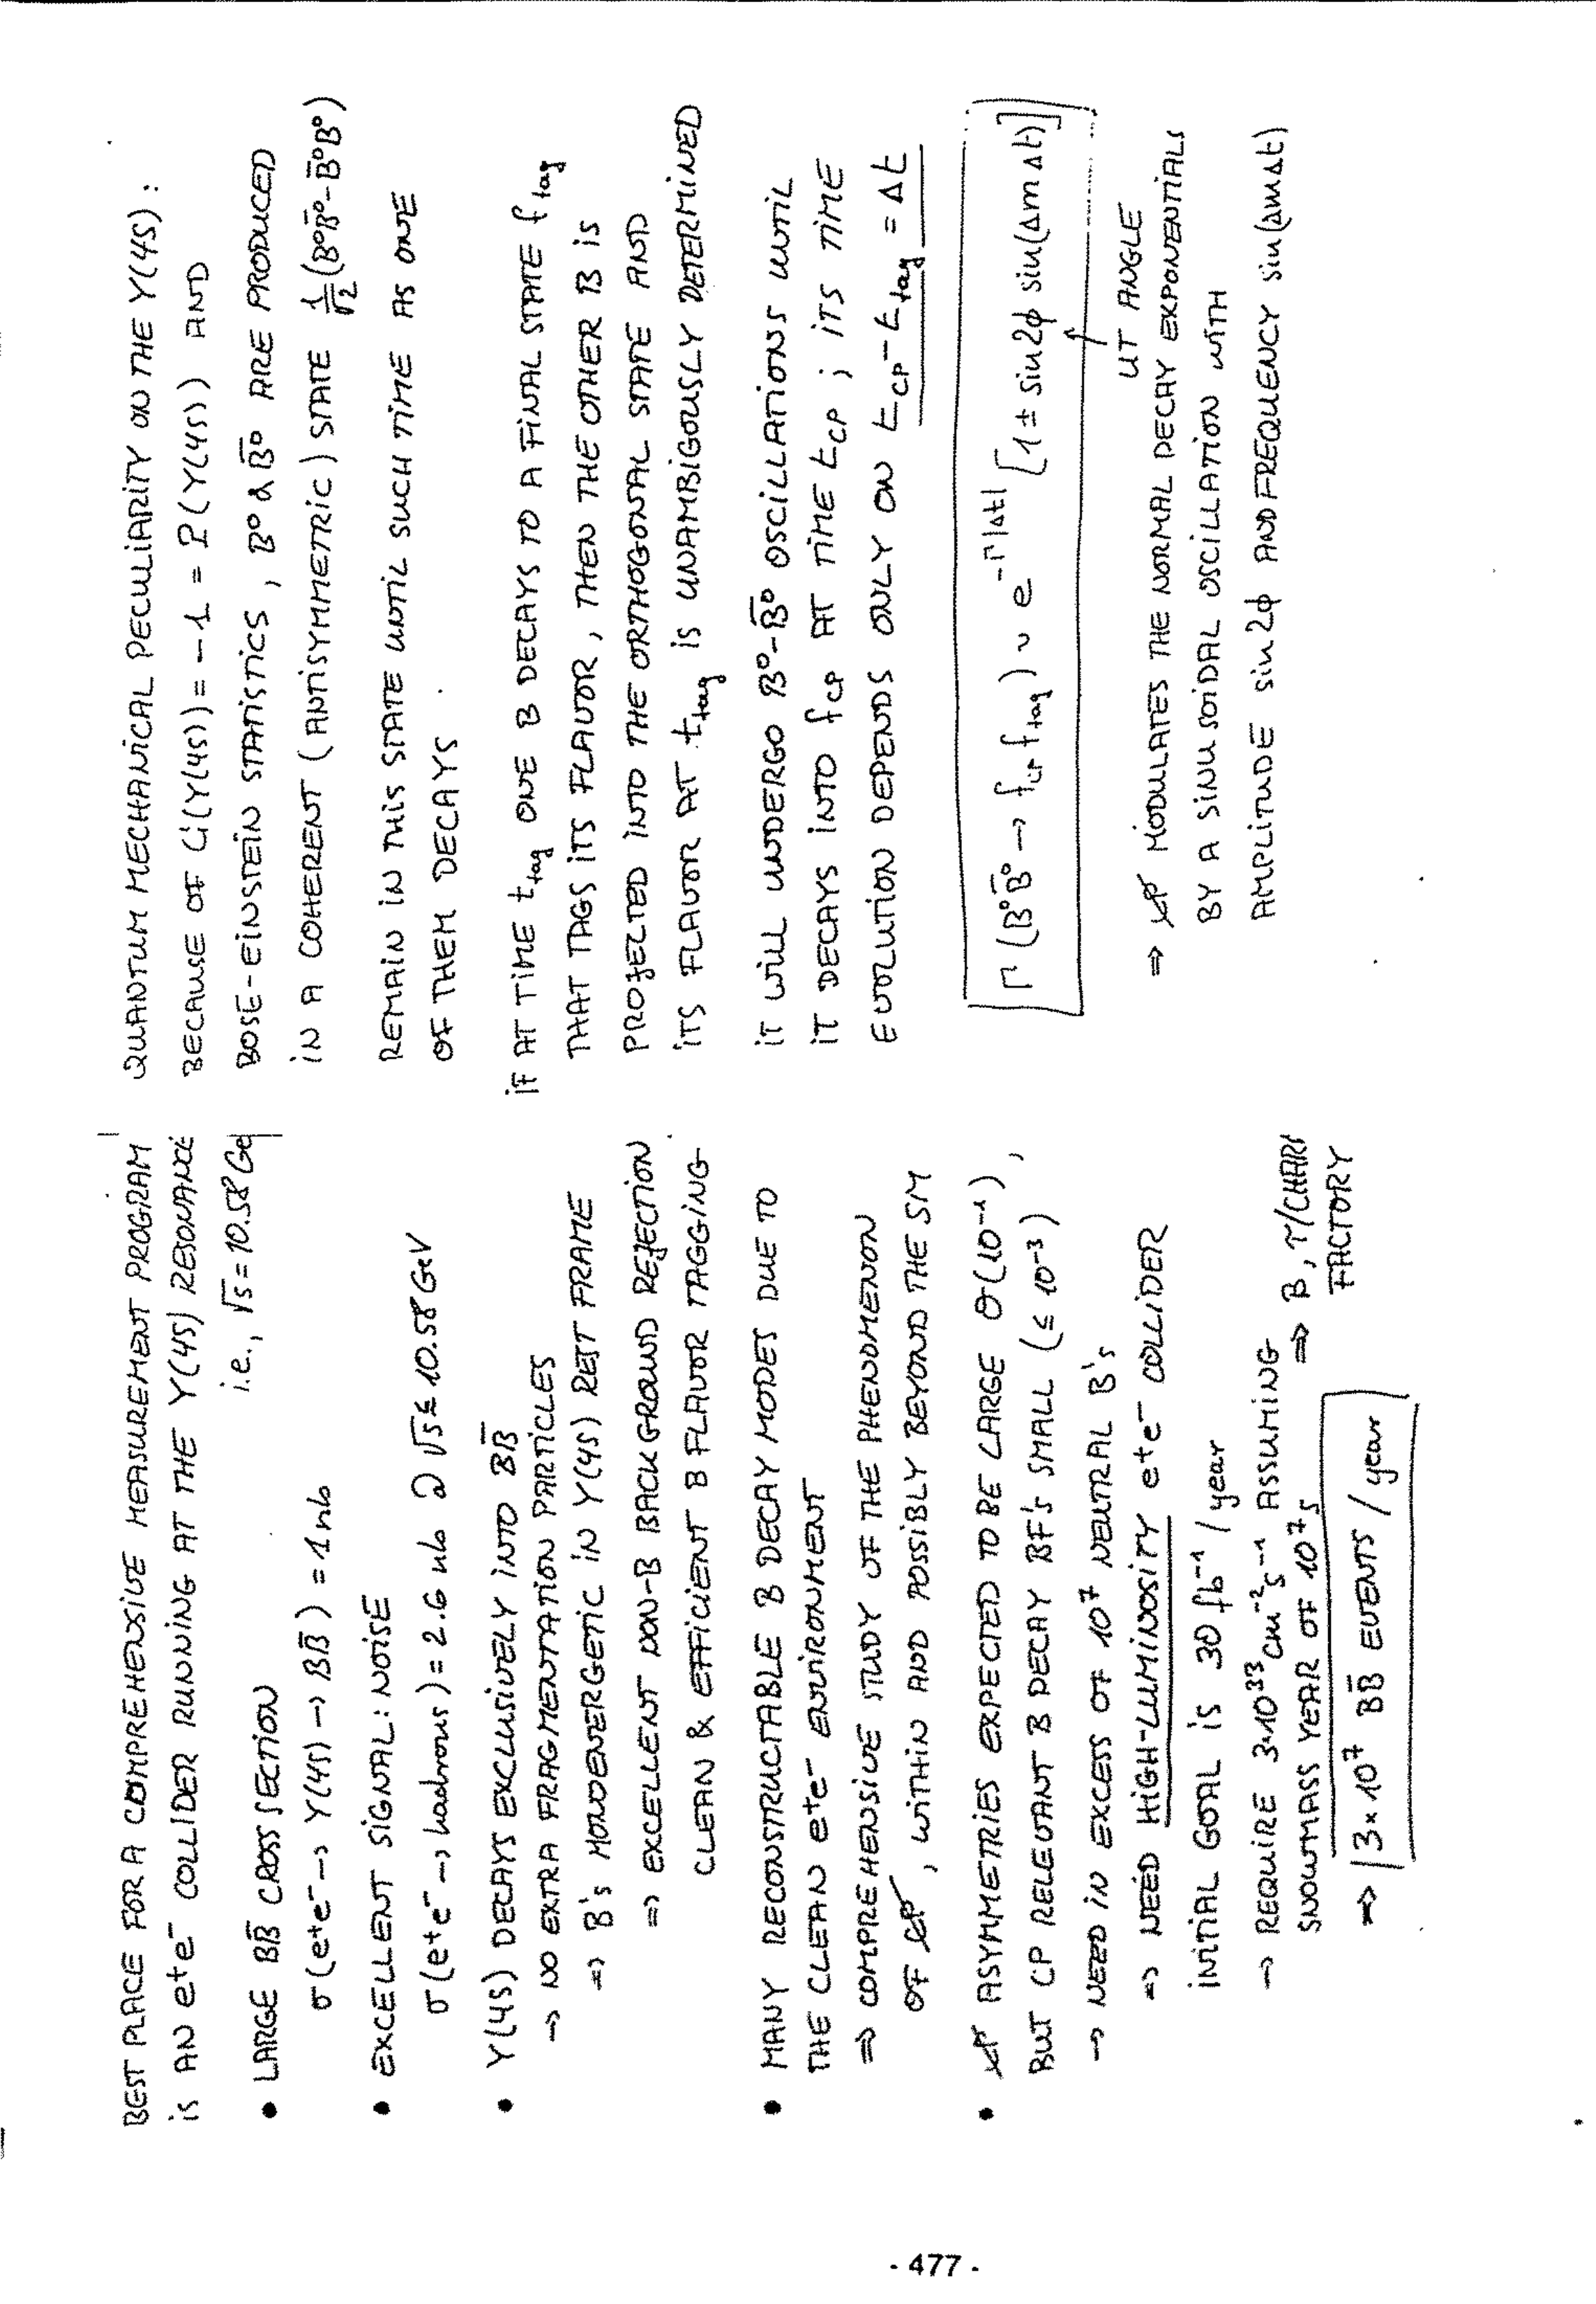 BEST PLACE FOR A COMPREHENSIVE MEASUREMENT PROGRAM
iS AN e⁺e⁻ COLLIDER RUNNING AT THE Υ(4S) RESONANCE
i.e., √s = 10.58 Ge
• LARGE BB̄ CROSS SECTION
σ(e⁺e⁻ → Υ(4S) → BB̄) = 1 nb
• EXCELLENT SIGNAL : NOiSE
σ(e⁺e⁻ → hadrons) = 2.6 nb @ √s ≤ 10.58 GeV
• Υ(4S) DECAYS EXCLUSIVELY INTO BB̄
→ NO EXTRA FRAGMENTATION PARTICLES
⇒ B's MONOENERGETIC IN Υ(4S) REST FRAME
⇒ EXCELLENT NON-B BACKGROUND REJECTION
CLEAN & EFFICIENT B FLAVOR TAGGING
• MANY RECONSTRUCTABLE B DECAY MODES DUE TO
THE CLEAN e⁺e⁻ ENVIRONMENT
⇒ COMPREHENSIVE STUDY OF THE PHENOMENON
OF C̸P̸, WITHIN AND POSSIBLY BEYOND THE SM
• C̸P̸ ASYMMETRIES EXPECTED TO BE LARGE O(10⁻¹),
BUT CP RELEVANT B DECAY BF's SMALL (≤ 10⁻³)
→ NEED IN EXCESS OF 10⁷ NEUTRAL B's
⇒ NEED HIGH-LUMINOSITY e⁺e⁻ COLLIDER
INITIAL GOAL IS 30 fb⁻¹ / year
→ REQUIRE 3·10³³ cm⁻²s⁻¹ ASSUMING
SNOWMASS YEAR OF 10⁷s ⇒ B, τ/CHAR
FACTORY
⇒ 3×10⁷ BB̄ EVENTS / year
QUANTUM MECHANICAL PECULIARITY ON THE Υ(4S) :
BECAUSE OF C(Υ(4S)) = -1 = P(Υ(4S)) AND
BOSE-EINSTEIN STATISTICS, B⁰ & B̄⁰ ARE PRODUCED
IN A COHERENT (ANTISYMMETRIC) STATE 1/√2 (B⁰B̄⁰ - B̄⁰B⁰)
REMAIN IN THIS STATE UNTIL SUCH TIME AS ONE
OF THEM DECAYS.
IF AT TIME t_tag ONE B DECAYS TO A FINAL STATE f_tag
THAT TAGS ITS FLAVOR, THEN THE OTHER B IS
PROJECTED INTO THE ORTHOGONAL STATE AND
ITS FLAVOR AT t_tag IS UNAMBIGOUSLY DETERMINED
IT WILL UNDERGO B⁰-B̄⁰ OSCILLATIONS UNTIL
IT DECAYS INTO f_CP AT TIME t_CP ; ITS TIME
EVOLUTION DEPENDS ONLY ON t_CP - t_tag = Δt
Γ(B⁰B̄⁰ → f_CP f_tag) ∼ e^-Γ|Δt| [1 ± sin2φ sin(Δm Δt)]
UT ANGLE
⇒ C̸P̸ MODULATES THE NORMAL DECAY EXPONENTIALS
BY A SINUSOIDAL OSCILLATION WITH
AMPLITUDE sin 2φ AND FREQUENCY sin(ΔmΔt)
- 477 -